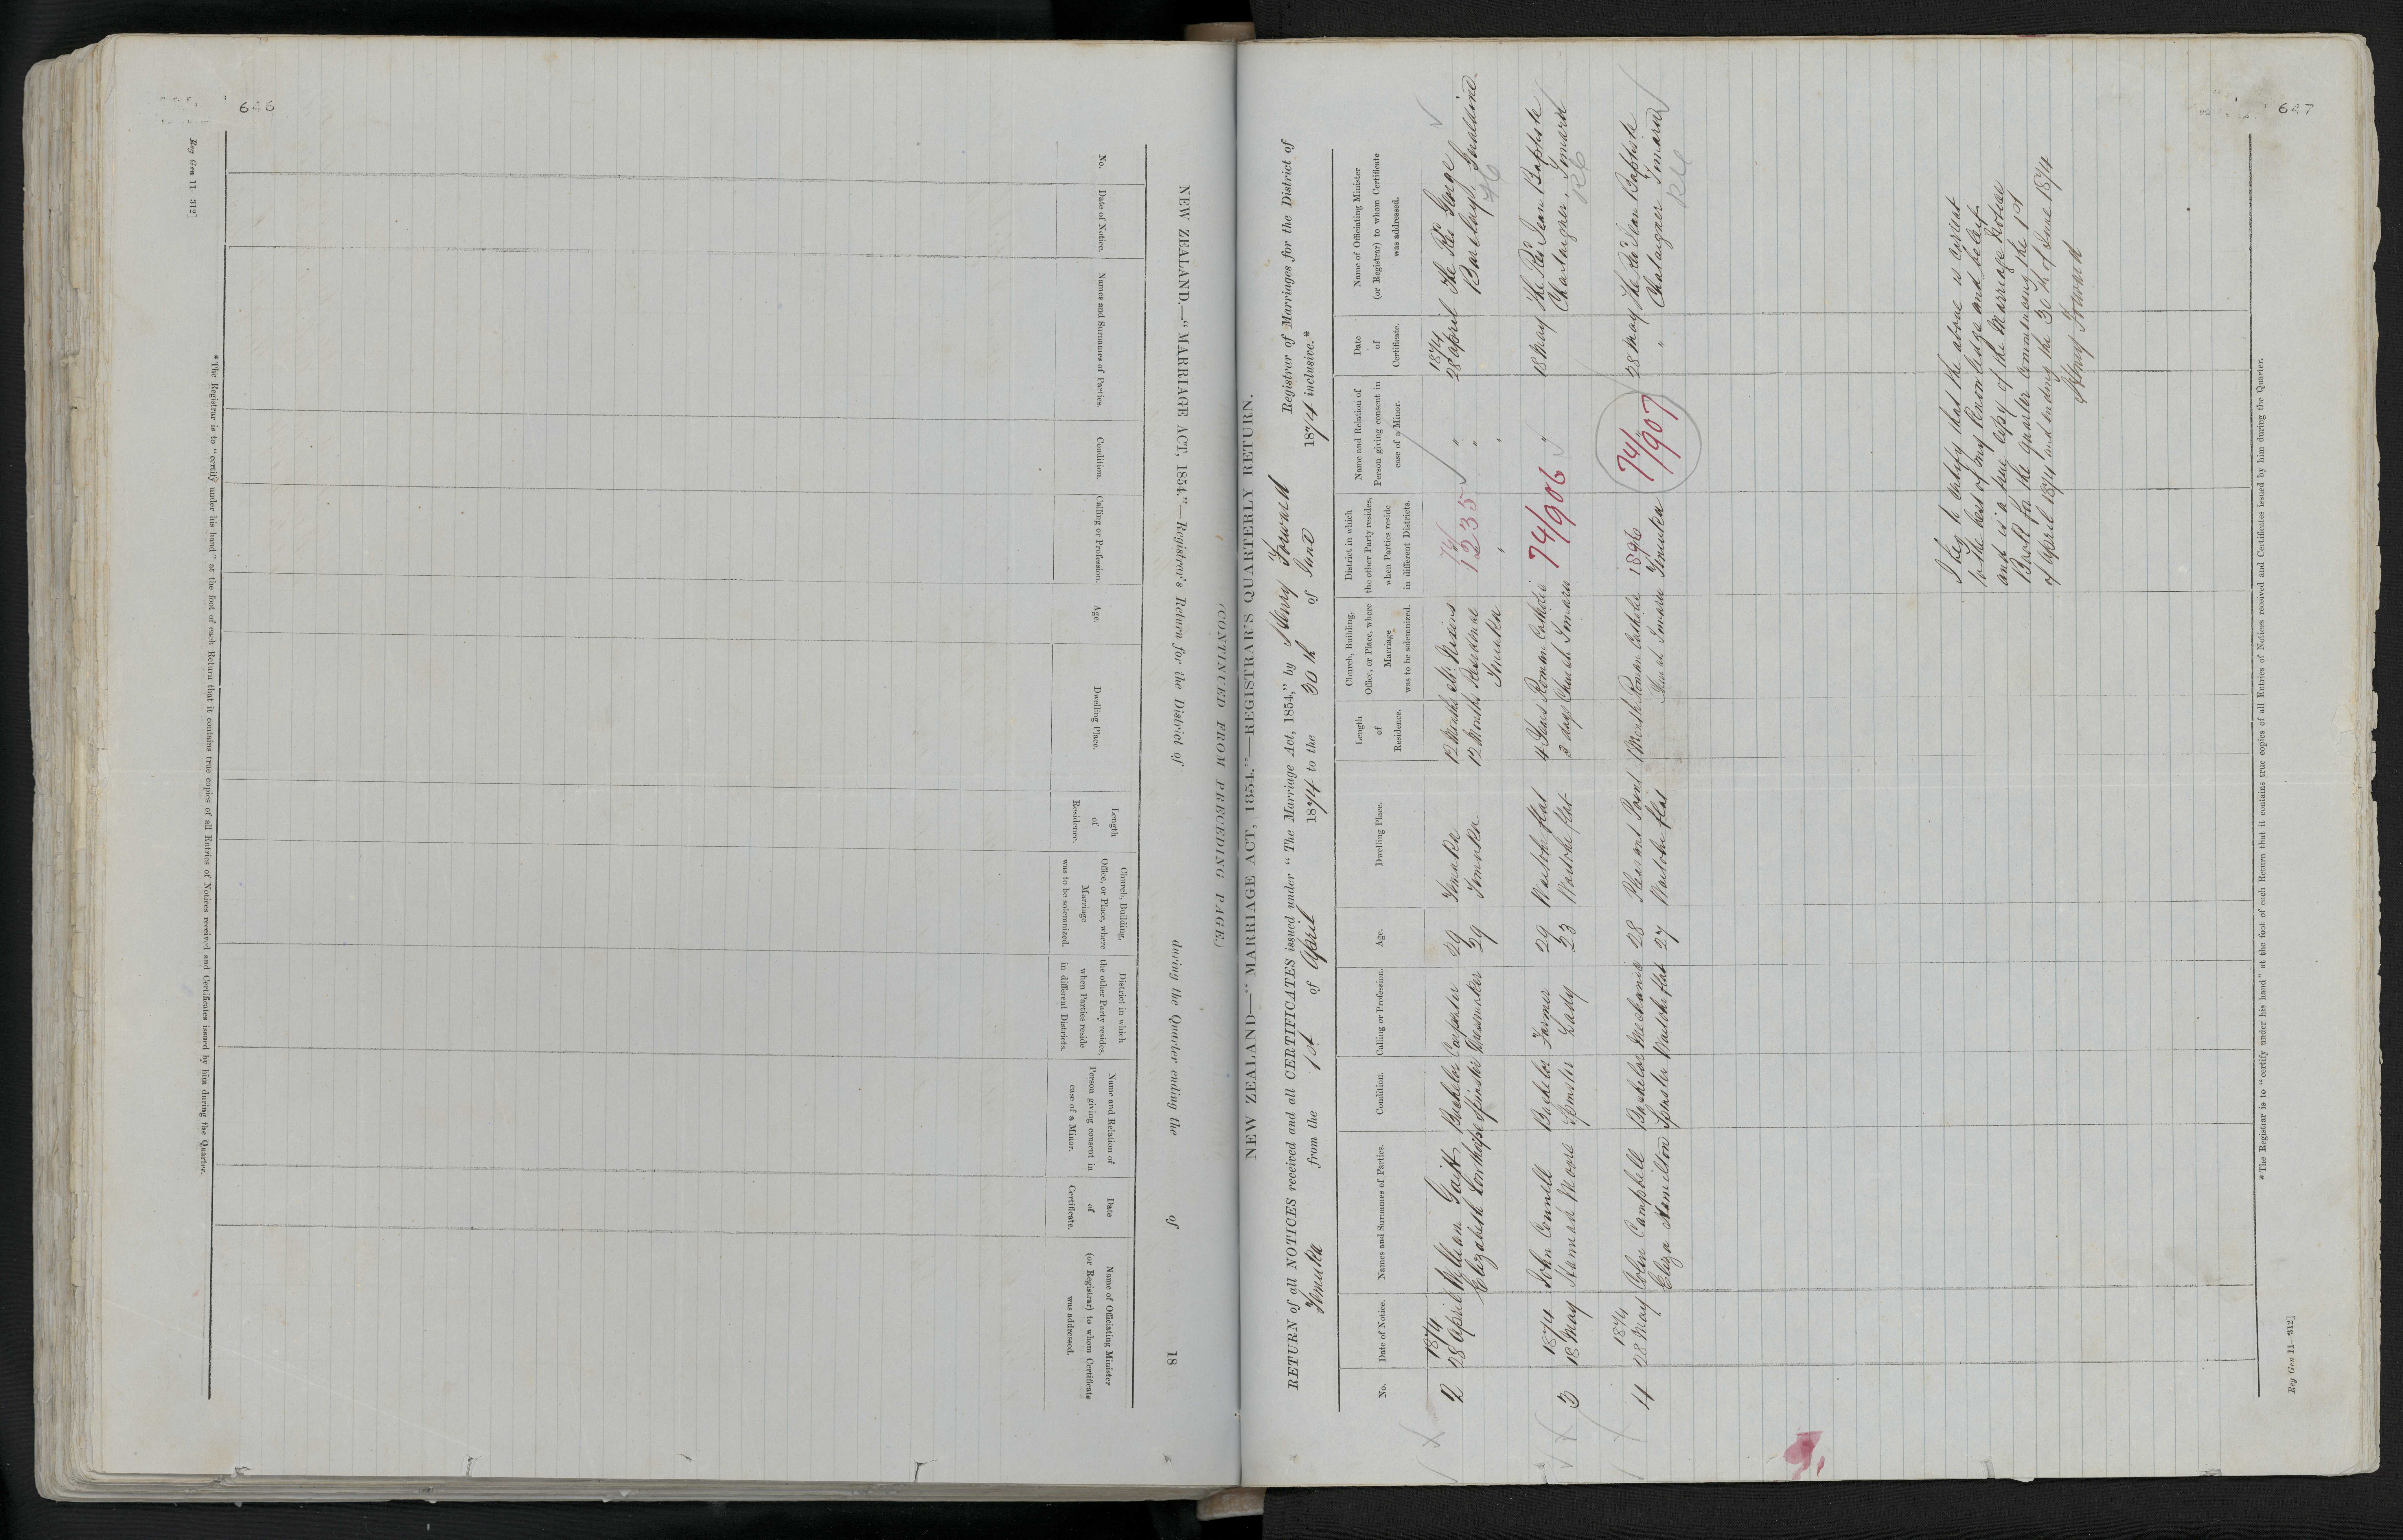 646
Reg Gen 11—312]
NEW ZEALAND.—"MARRIAGE ACT, 1854."—Registrar's Return for the District of during the Quarter ending the of 18
(CONTINUED FROM PRECEDING PAGE.)
No.
Date of Notice.
Names and Surnames of Parties.
Condition.
Calling or Profession.
Age.
Dwelling Place.
Length
of
Residence.
Church, Building,
Office, or Place, where
Marriage
was to be solemnized.
District in which
the other Party resides,
when Parties reside
in different Districts.
Name and Relation of
Person giving consent in
case of a Minor.
Date
of
Certificate.
Name of Officiating Minister
(or Registrar) to whom Certificate
was addressed.
*The Registrar is to "certify under his hand" at the foot of each Return that it contains true copies of all Entries of Notices received and Certificates issued by him during the Quarter.
647
NEW ZEALAND—"MARRIAGE ACT, 1854."—REGISTRAR'S QUARTERLY RETURN.
RETURN of all NOTICES received and all CERTIFICATES issued under "The Marriage Act, 1854," by Henry Howard Registrar of Marriages for the District of
Temuka from the 1st of April 1874 to the 30th of June 1874 inclusive.*
No.
Date of Notice.
Names and Surnames of Parties.
Condition.
Calling or Profession.
Age.
Dwelling Place.
Length
of
Residence.
Church, Building,
Office, or Place, where
Marriage
was to be solemnized.
District in which
the other Party resides,
when Parties reside
in different Districts.
Name and Relation of
Person giving consent in
case of a Minor.
Date
of
Certificate.
Name of Officiating Minister
(or Registrar) to whom Certificate
was addressed.
1874 74/ 1874
2 28 April William Bachelor Carpenter 29 Temuka 12 Months Mr 1235 " 28 April The Revd George
Elizabeth Spinster Dressmaker 29 Temuka 12 Months Residence " Barclay, Geraldine
Temuka
1874 John Connell Bachelor Farmer 29 Waitohi flat 4 Years Roman Catholic 74/906 " 18 May The Revd Jean Baptiste
3 18 May Hannah Moore Spinster Lady 23 Waitohi flat 3 days Church Timaru Chataigner, Timaru
1874
4 28 May Colin Campbell Bachelor Mechanic 28 Pleasant Point Month Roman Catholic 1896 74/907 28 May The Revd Jean Baptiste
Eliza Hamilton Spinster Waitohi flat 27 Waitohi flat Timaru Temuka " Chataigner Timaru
I beg to certify that the above is correct
to the best of my knowledge and belief
and is a true copy of the Marriage Notice
Book for the quarter commencing the 1st
of April 1874 and ending the 30th of June 1874
Henry Howard
*The Registrar is to "certify under his hand" at the foot of each Return that it contains true copies of all Entries of Notices received and Certificates issued by him during the Quarter.
Reg Gen 11—312]